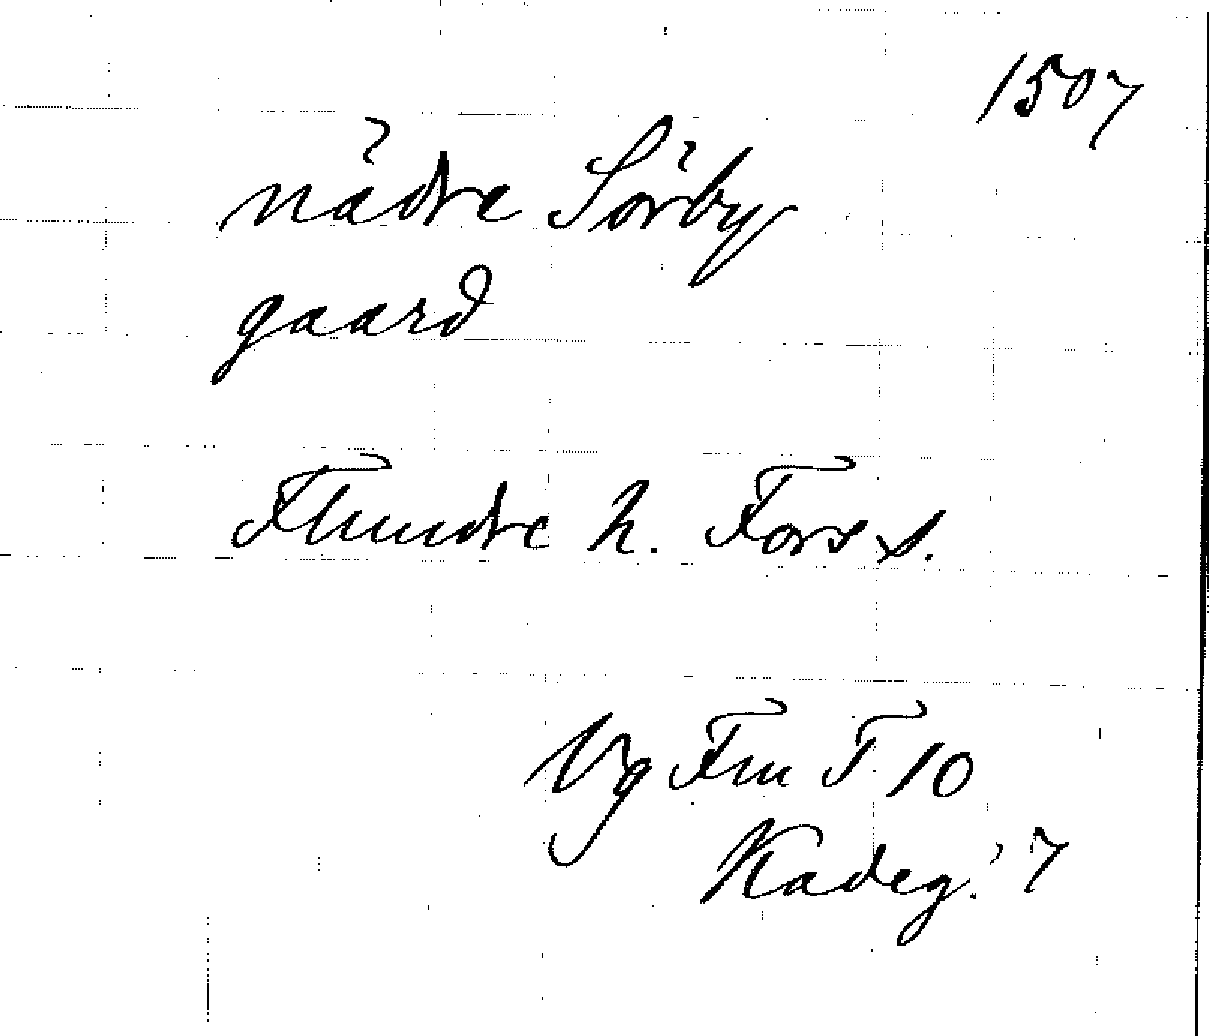 1507
nädre Sörby
gaard
Flundre h. Fors s.
Vg Fru T 10
Kadeg. 7